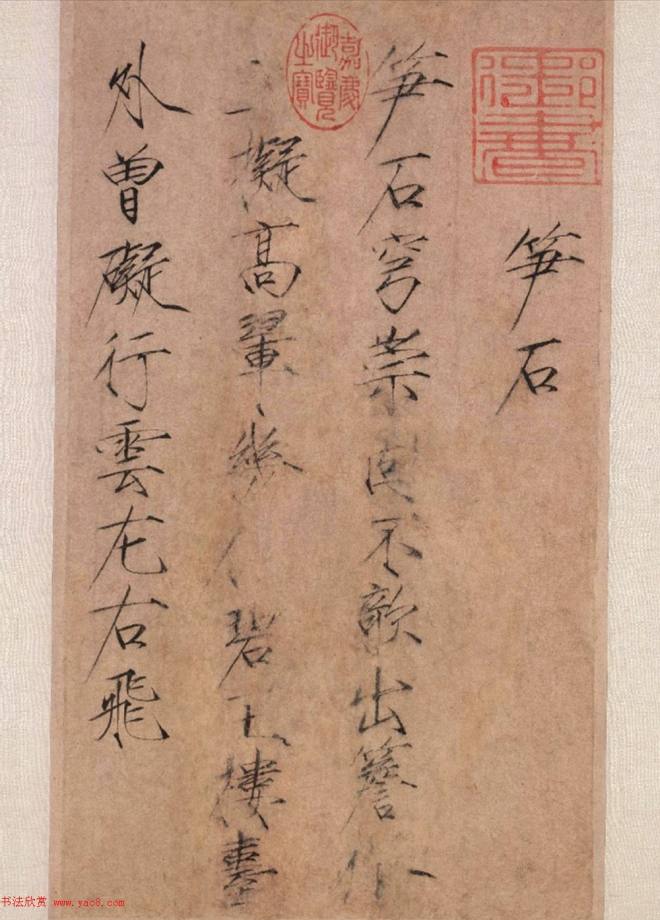 御書
笋石
嘉慶御覽之寶
笋石穹崇固不欹出簷
擬高翬幾碧玉樓臺
外曾礙行雲左右飛
书法欣赏 www.yac8.com